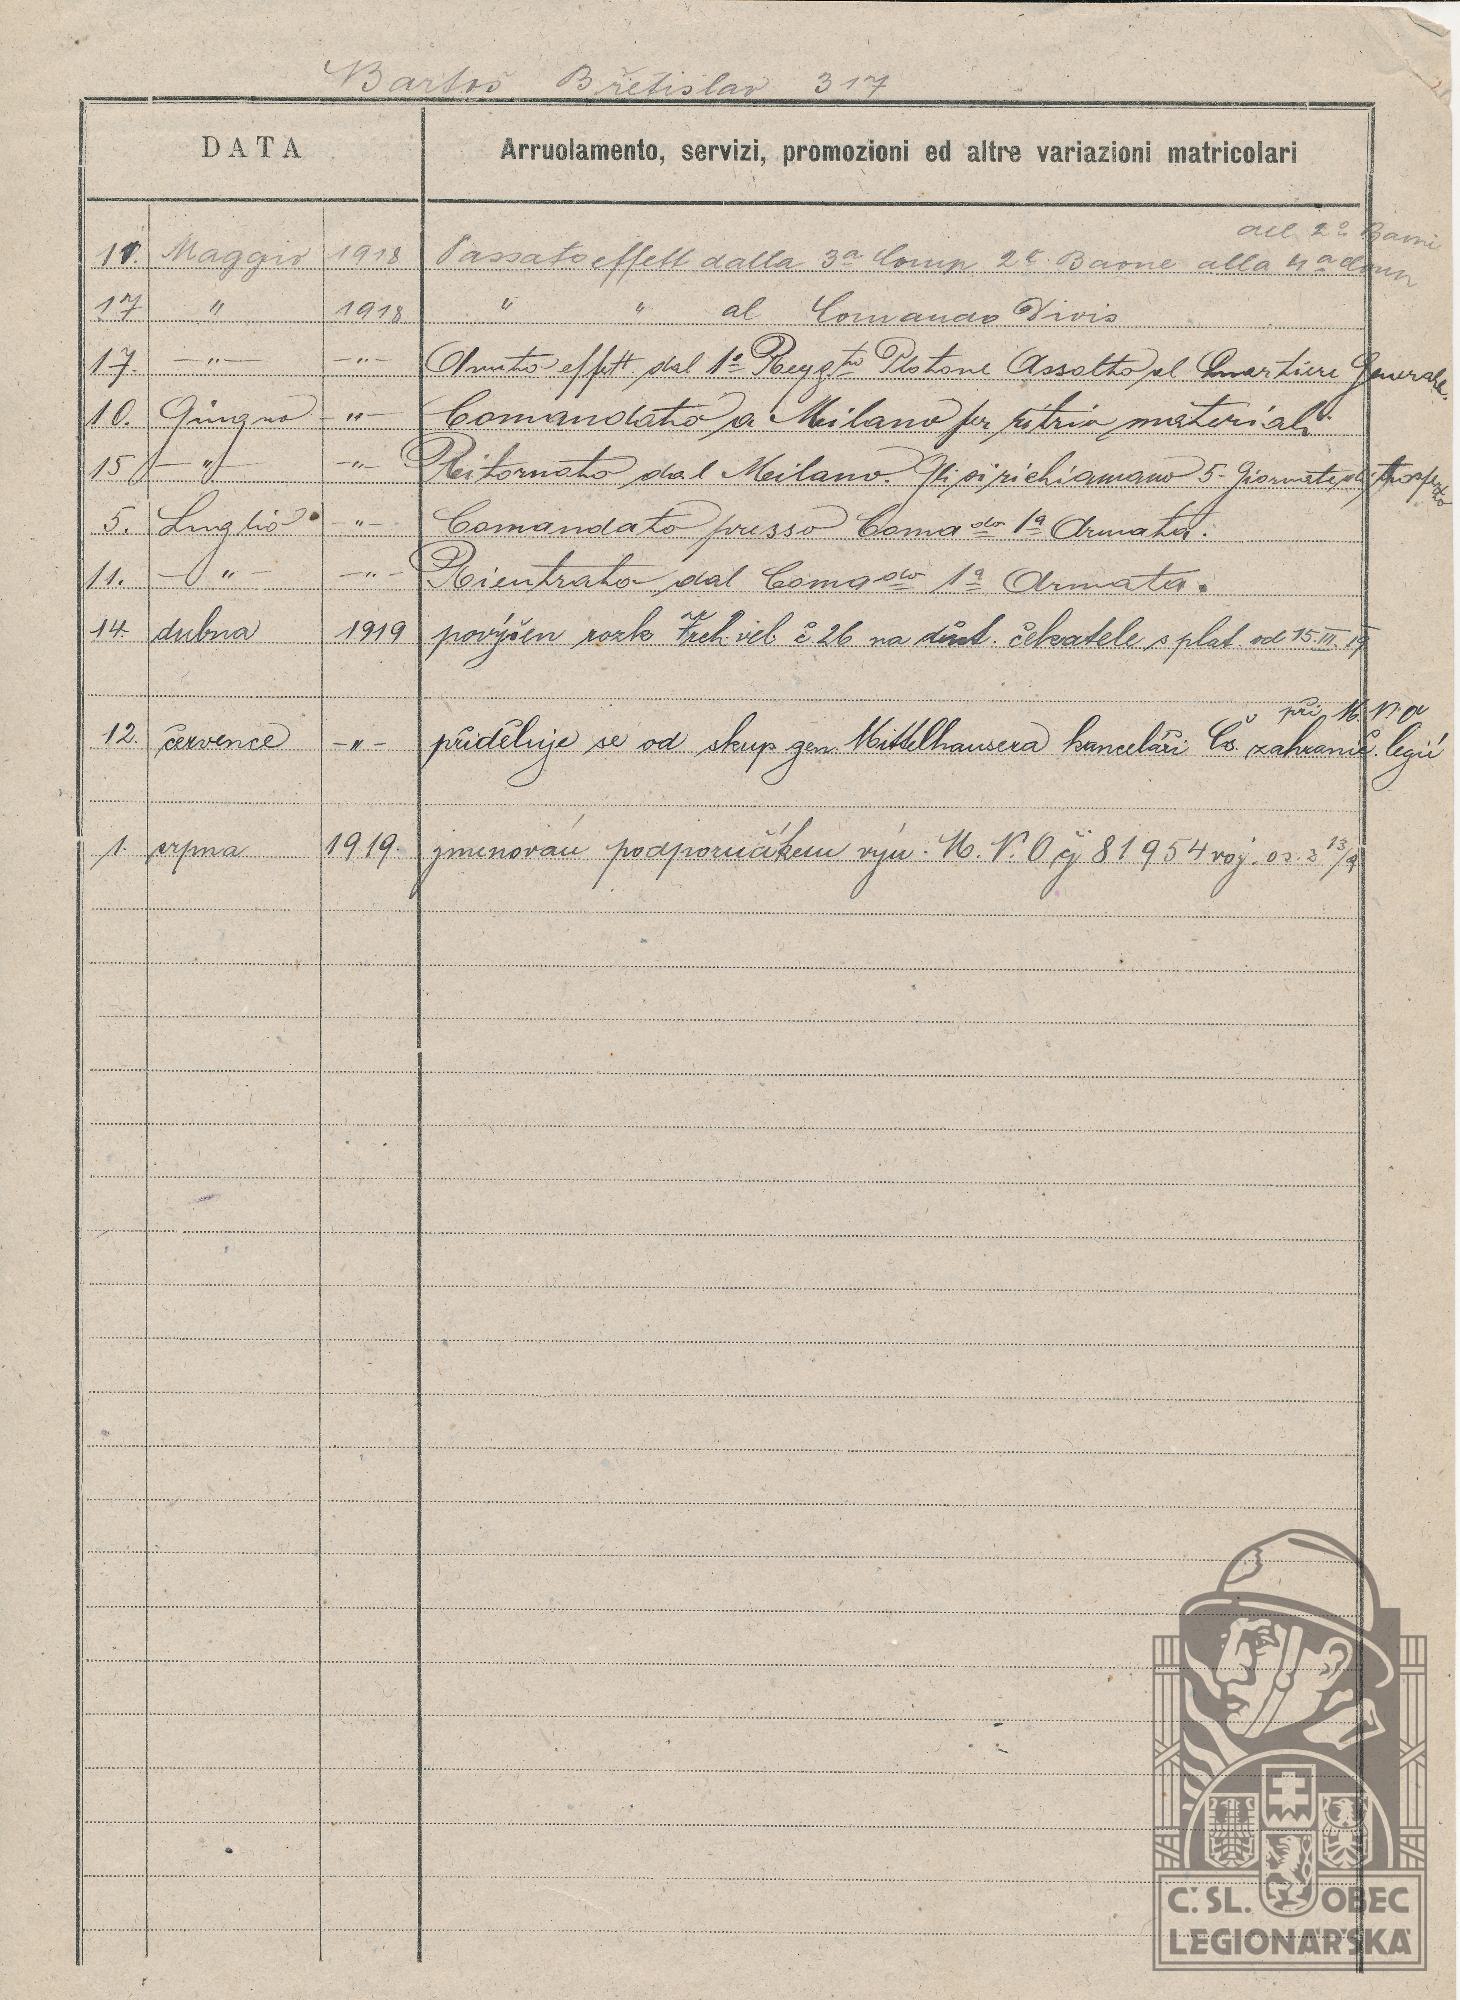 Bartoš Břetislav 317
DATA
Arruolamento, servizi, promozioni ed altre variazioni matricolari
del 2º Baoni
11. Maggio 1918 Passato effett dalla 3ª Comp 2º Baone alla 4ª Comp
17 " 1918 " " al Comando Divis
17. —"— —"— effett. dal 1º Reggto Plotone Assalto al Quartiere Generale.
10. Giugno —"— Comandato a Milano per ritrio materiali
15 —"— —"— Ritornato dal Milano. Gli si richiamano 5 Giornate di trasferta
5. Luglio —"— Comandato presso Comando 1ª Armata.
11. —"— —"— Rientrato dal Comando 1ª Armata.
14. dubna 1919 povýšen rozk vel č 26 na důst. čekatele s plat. od 15 III. 19
při M. N. O
12. července —"— přiděluje se od skup gen Mittelhausera kanceláři Čs. zahranič. legií
1. srpna 1919. jmenován podporučíkem výn. M. N. O čj 81954 voj. os. z 13/9
Č. SL. OBEC
LEGIONÁŘSKÁ